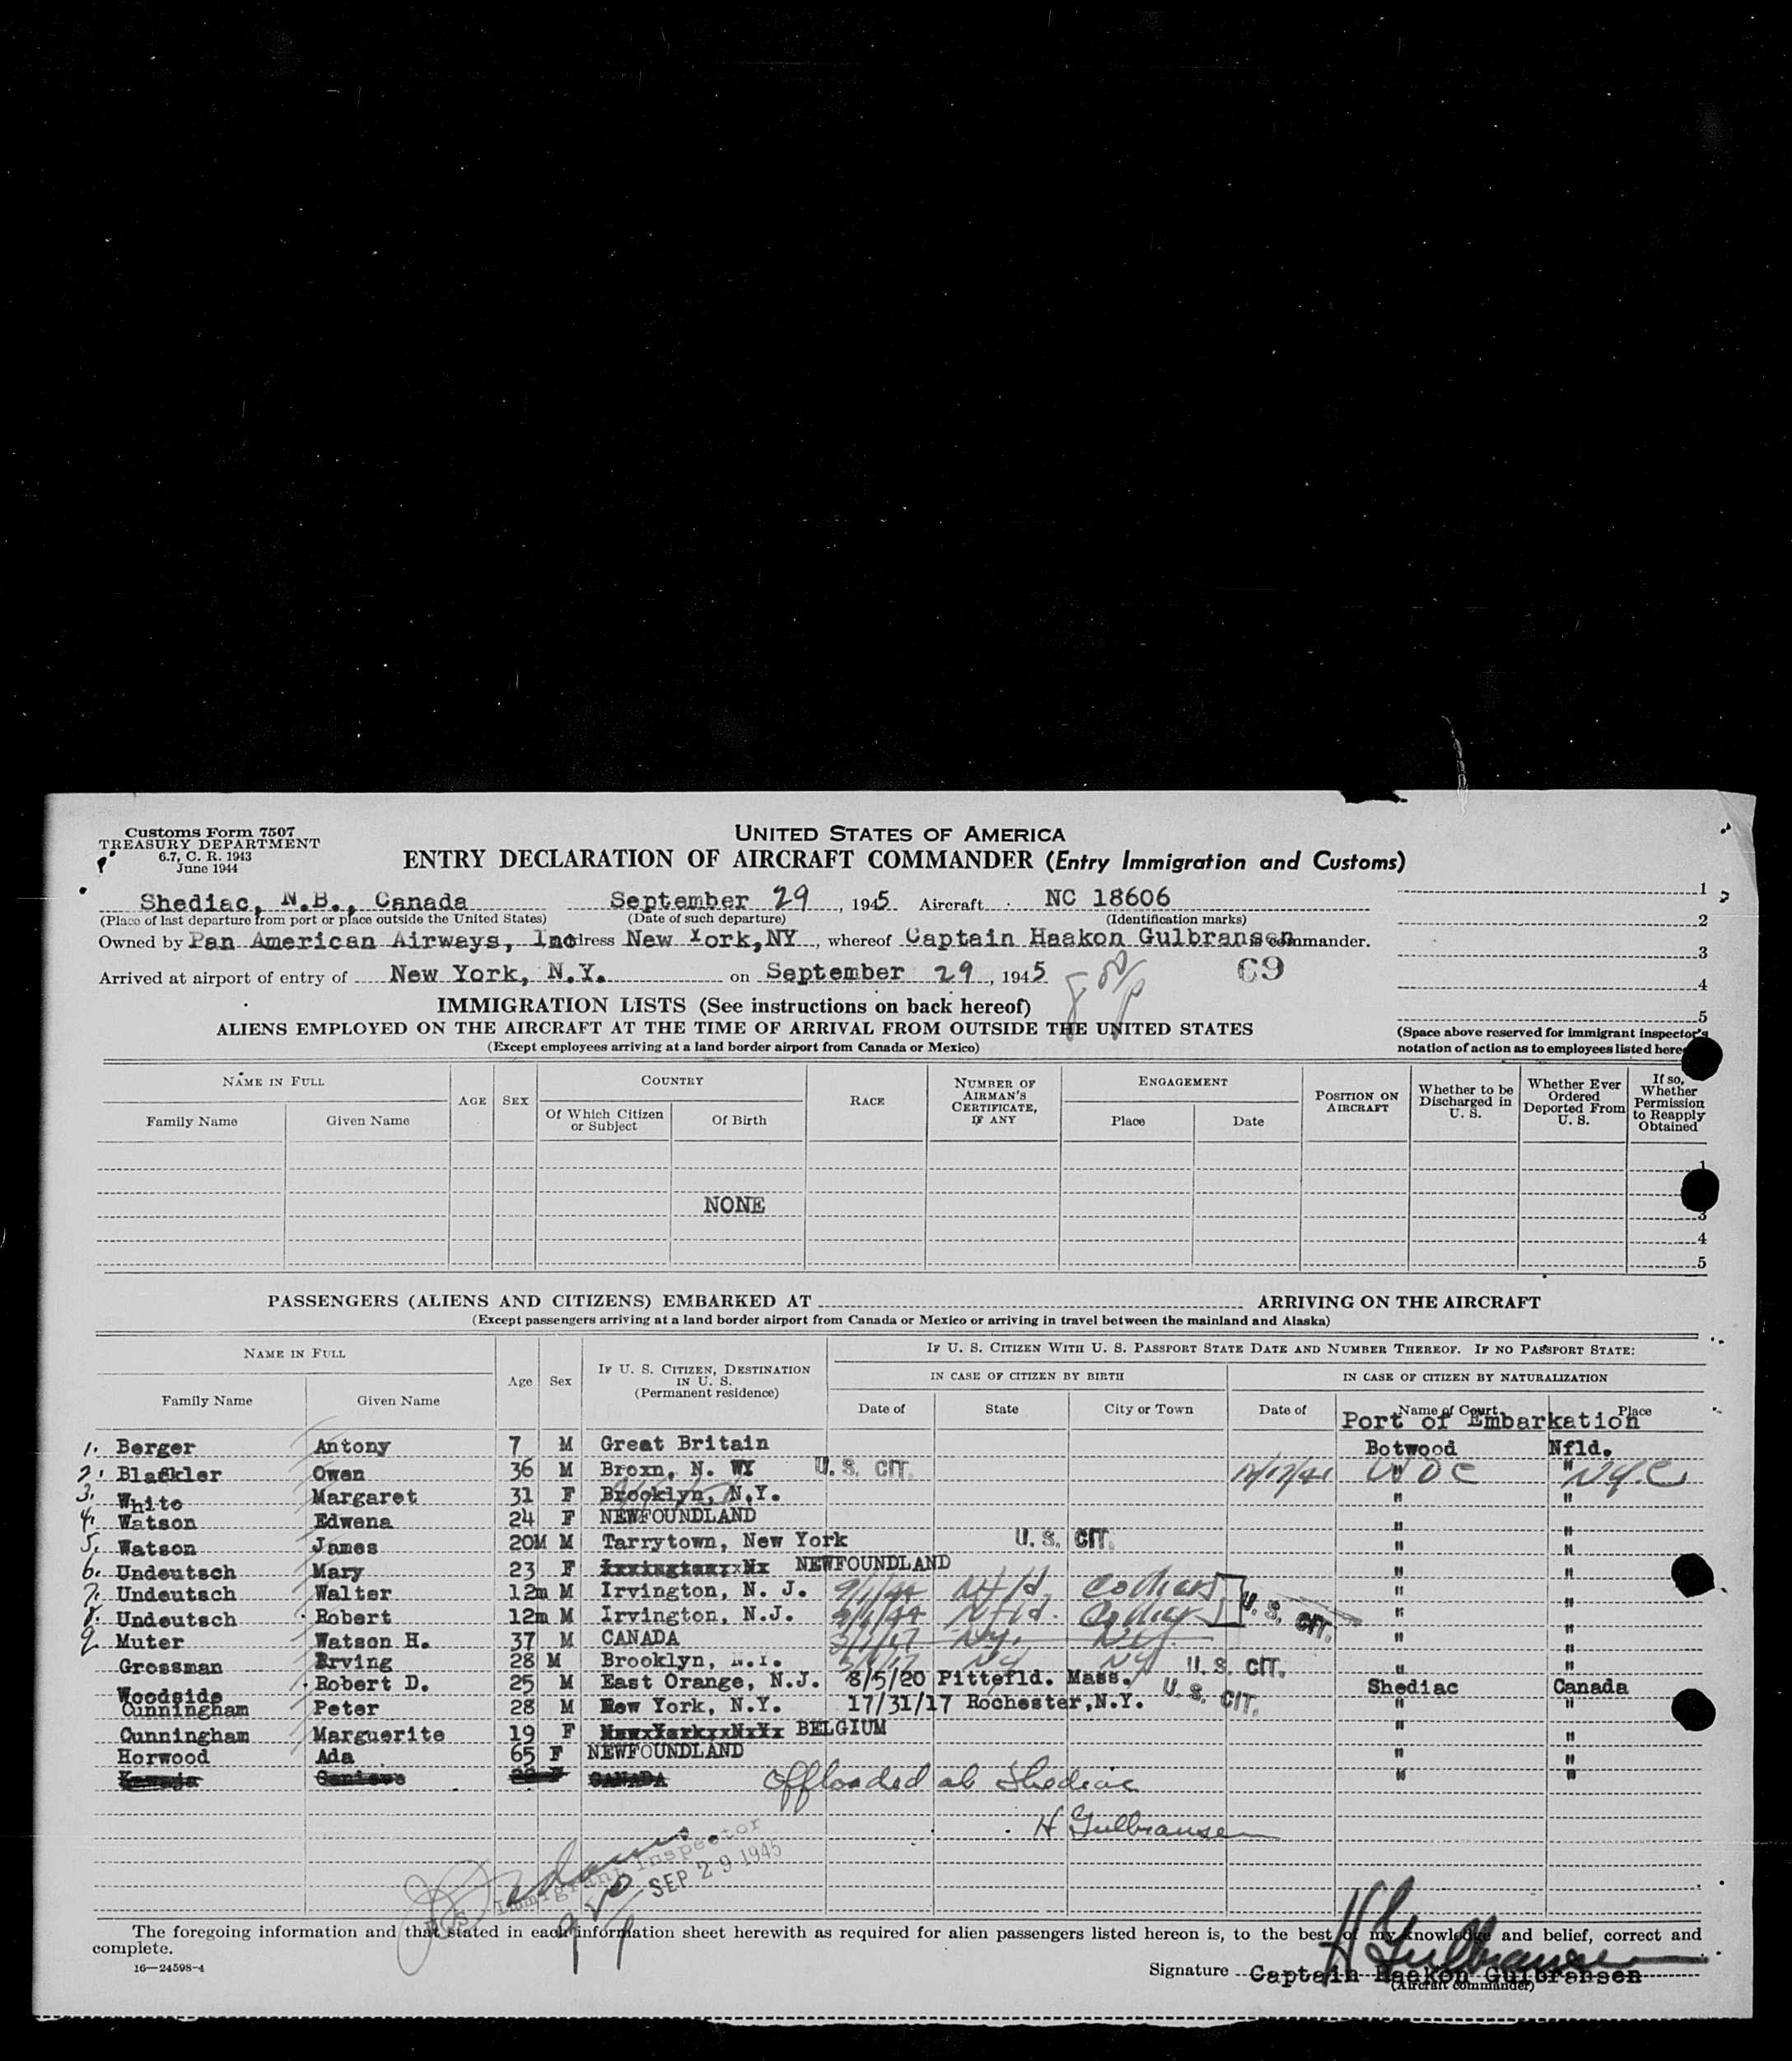 Customs Form 7507
TREASURY DEPARTMENT
6.7, C. R. 1943
June 1944
UNITED STATES OF AMERICA
ENTRY DECLARATION OF AIRCRAFT COMMANDER (Entry Immigration and Customs)
Shediac, N.B., Canada September 29, 1945 Aircraft NC 18606
(Place of last departure from port or place outside the United States) (Date of such departure) (Identification marks)
Owned by Pan American Airways, Inc dress New York, NY, whereof Captain Haakon Gulbransen commander.
Arrived at airport of entry of New York, N.Y. on September 29, 1945
69
1
2
3
4
5
(Space above reserved for immigrant inspector's
notation of action as to employees listed here
IMMIGRATION LISTS (See instructions on back hereof)
ALIENS EMPLOYED ON THE AIRCRAFT AT THE TIME OF ARRIVAL FROM OUTSIDE THE UNITED STATES
(Except employees arriving at a land border airport from Canada or Mexico)
NAME IN FULL
Family Name Given Name
AGE SEX
COUNTRY
Of Which Citizen or Subject Of Birth
RACE
NUMBER OF AIRMAN'S CERTIFICATE, IF ANY
ENGAGEMENT
Place Date
POSITION ON AIRCRAFT
Whether to be Discharged in U. S.
Whether Ever Ordered Deported From U. S.
If so, Whether Permission to Reapply Obtained
1
NONE
3
4
5
PASSENGERS (ALIENS AND CITIZENS) EMBARKED AT ARRIVING ON THE AIRCRAFT
(Except passengers arriving at a land border airport from Canada or Mexico or arriving in travel between the mainland and Alaska)
NAME IN FULL
Family Name Given Name
Age Sex
IF U. S. CITIZEN, DESTINATION IN U. S. (Permanent residence)
IF U. S. CITIZEN WITH U. S. PASSPORT STATE DATE AND NUMBER THEREOF. IF NO PASSPORT STATE:
IN CASE OF CITIZEN BY BIRTH IN CASE OF CITIZEN BY NATURALIZATION
Date of State City or Town Date of Name of Court Place
Port of Embarkation
1. Berger Antony 7 M Great Britain Botwood Nfld.
2. Blackler Owen 36 M Broxn, N. U. S. CIT. 12/17/41 U D C " N.Y.C.
3. White Margaret 31 F Brooklyn, N.Y. " "
4. Watson Edwena 24 F NEWFOUNDLAND " "
5. Watson James 20M M Tarrytown, New York U. S. CIT. " "
6. Undeutsch Mary 23 F NEWFOUNDLAND " "
7. Undeutsch Walter 12m M Irvington, N. J. 9/1/44 Nfld. U. S. CIT. " "
8. Undeutsch Robert 12m M Irvington, N.J. 9/1/44 Nfld. " "
9. Muter Watson H. 37 M CANADA N.Y. N.Y. " "
Grossman Erving 28 M Brooklyn, N.Y. NY NY U. S. CIT. " "
Woodside Robert D. 25 M East Orange, N.J. 8/5/20 Pittsfld. Mass. U. S. CIT. Shediac Canada
Cunningham Peter 28 M New York, N.Y. 17/31/17 Rochester, N.Y. " "
Cunningham Marguerite 19 F BELGIUM " "
Horwood Ada 65 F NEWFOUNDLAND " "
CANADA Offloaded at Shediac " "
H Gulbransen
U. S. Immigrant Inspector
SEP 29 1945
The foregoing information and that stated in each information sheet herewith as required for alien passengers listed hereon is, to the best of my knowledge and belief, correct and
complete.
16—24598-4
H Gulbransen
Signature Captain Haakon Gulbransen
(Aircraft commander)